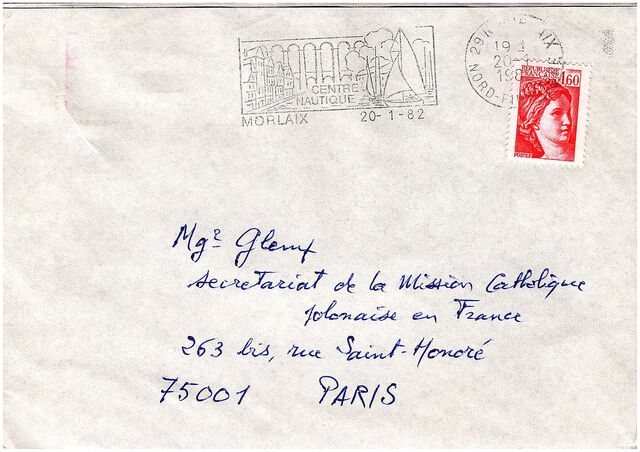 CENTRE
NAUTIQUE
MORLAIX 20-1-82
29 N
19
20-1
198
NORD-FI
REPUBLIQUE
FRANÇAISE 1,60
POSTES
Mgr Glemp
secretariat de la Mission Catholique
polonaise en France
263 bis, rue Saint-Honoré
75001 PARIS